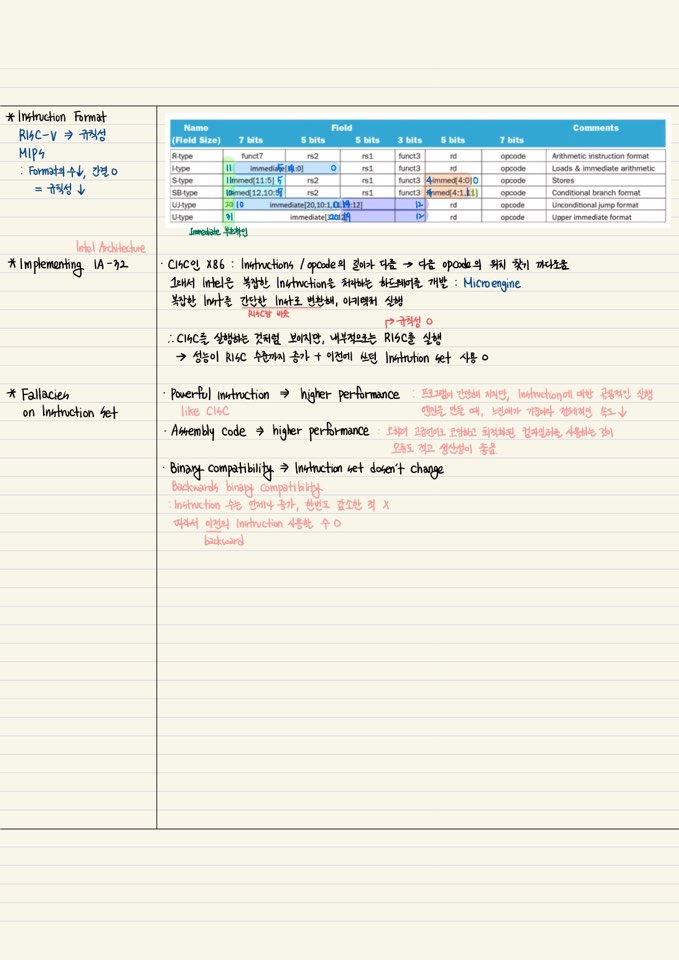 * Instruction Format
RISC-V ⇒ 규칙성
MIPS
: Format의 수↓, 간결 O
= 규칙성 ↓
Name Field Comments
(Field Size) 7 bits 5 bits 5 bits 3 bits 5 bits 7 bits
R-type funct7 rs2 rs1 funct3 rd opcode Arithmetic instruction format
I-type immediate[11:0] rs1 funct3 rd opcode Loads & immediate arithmetic
S-type immed[11:5] rs2 rs1 funct3 immed[4:0] opcode Stores
SB-type immed[12,10:5] rs2 rs1 funct3 immed[4:1,11] opcode Conditional branch format
UJ-type immediate[20,10:1,11,19:12] rd opcode Unconditional jump format
U-type immediate[31:12] rd opcode Upper immediate format
Immediate
Intel Architecture
* Implementing IA-32
· CISC인 X86 : Instructions / opcode의 길이가 다름 → 다음 opcode의 위치 찾기 까다로움
그래서 Intel은 복잡한 Instruction을 처리하는 하드웨어를 개발 : Microengine
복잡한 Inst를 간단한 Inst로 변환해, 아키텍처 실행
RISC랑 비슷
→ 규칙성 O
∴ CISC를 실행하는 것처럼 보이지만, 내부적으로는 RISC를 실행
→ 성능이 RISC 수준까지 증가 + 이전에 쓰던 Instrution set 사용 O
* Fallacies
on Instruction Set
· Powerful instruction ⇒ higher performance : 프로그램이 간단해 지지만, Instruction에 대한 공통적인 실행
like CISC 엔진을 만들 때, 느린애가 기준이라 전체적인 속도↓
· Assembly code ⇒ higher performance : 오히려 고급언어로 코딩하고 최적화된 컴파일러를 사용하는 것이
오류도 적고 생산성이 좋음
· Binary compatibility ⇒ Instruction set dosen't change
Backwards binary compatibility
: Instruction 수는 언제나 증가, 한번도 감소한 적 X
따라서 이전의 Instruction 사용할 수 O
backward